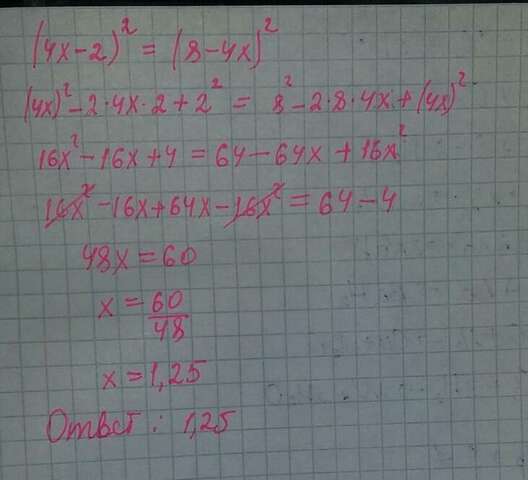 (4x-2)² = (8-4x)²
(4x)²-2·4x·2+2² = 8²-2·8·4x+(4x)²
16x²-16x+4 = 64-64x+16x²
16x²-16x+64x-16x² = 64-4
48x = 60
x = 60/48
x = 1,25
Ответ: 1,25